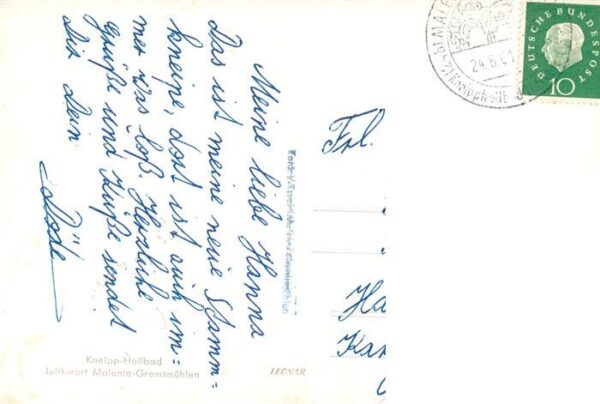 Meine liebe Hanna
Das ist meine neue Stamm=
kneipe, dort ist auch im=
mer was loß. Herzliche
Grüße und Küße sendet
Dir Dein
Frl.
Ha
Kan
Kneipp-Heilbad
Luftkurort Malente-Gremsmühlen
LEONAR
MALE
24.6.61
DEUTSCHE BUNDESPOST
10